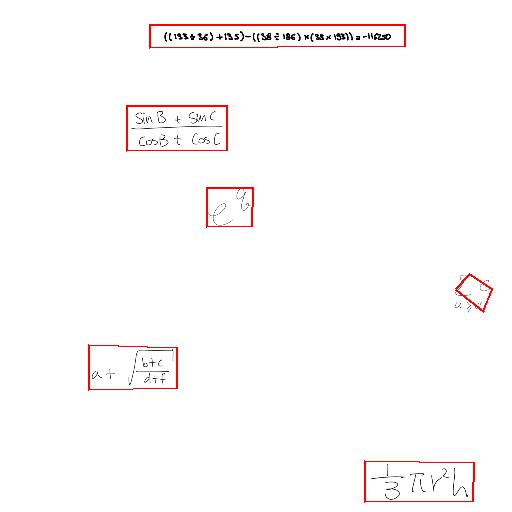 ((133+36)+135)-((38÷186)×(38×193))=-116250
(sin B + sin C)/(cos B + cos C)
e^q
a + √((b+c)/(d+f))
1/3 πr²h